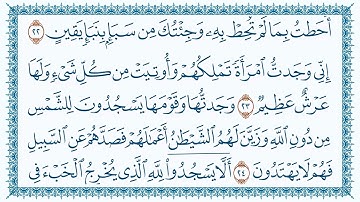 أَحَطتُ بِمَا لَمْ تُحِطْ بِهِۦ وَجِئْتُكَ مِن سَبَإٍۭ بِنَبَإٍ يَقِينٍ ٢٢
إِنِّى وَجَدتُّ ٱمْرَأَةً تَمْلِكُهُمْ وَأُوتِيَتْ مِن كُلِّ شَىْءٍ وَلَهَا
عَرْشٌ عَظِيمٌ ٢٣ وَجَدتُّهَا وَقَوْمَهَا يَسْجُدُونَ لِلشَّمْسِ
مِن دُونِ ٱللَّهِ وَزَيَّنَ لَهُمُ ٱلشَّيْطَٰنُ أَعْمَٰلَهُمْ فَصَدَّهُمْ عَنِ ٱلسَّبِيلِ
فَهُمْ لَا يَهْتَدُونَ ٢٤ أَلَّا يَسْجُدُوا۟ لِلَّهِ ٱلَّذِى يُخْرِجُ ٱلْخَبْءَ فِى